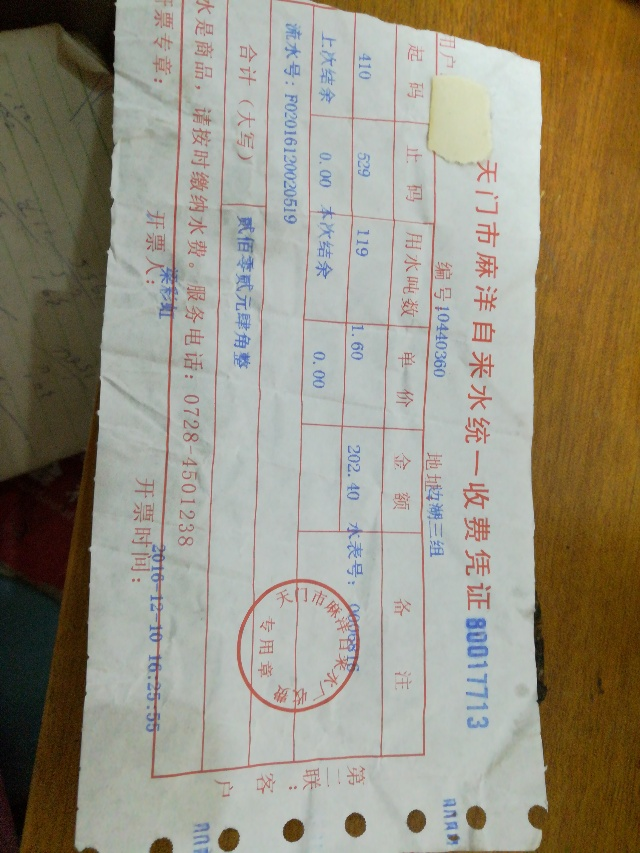 天门市麻洋自来水统一收费凭证 80017713
用户 编号10440360 地址边湖三组
起码 止码 用水吨数 单价 金额 备注
410 529 119 1.60 202.40 水表号:
上次结余 0.00 本次结余 0.00
流水号: F0201612002051​9
合计（大写） 贰佰零贰元肆角整
水是商品，请按时缴纳水费。服务电话: 0728-4501238
开票专章: 开票人: 开票时间: 2016-12-10 16:25:55
天门市麻洋自来水厂
专用章
第二联: 客户